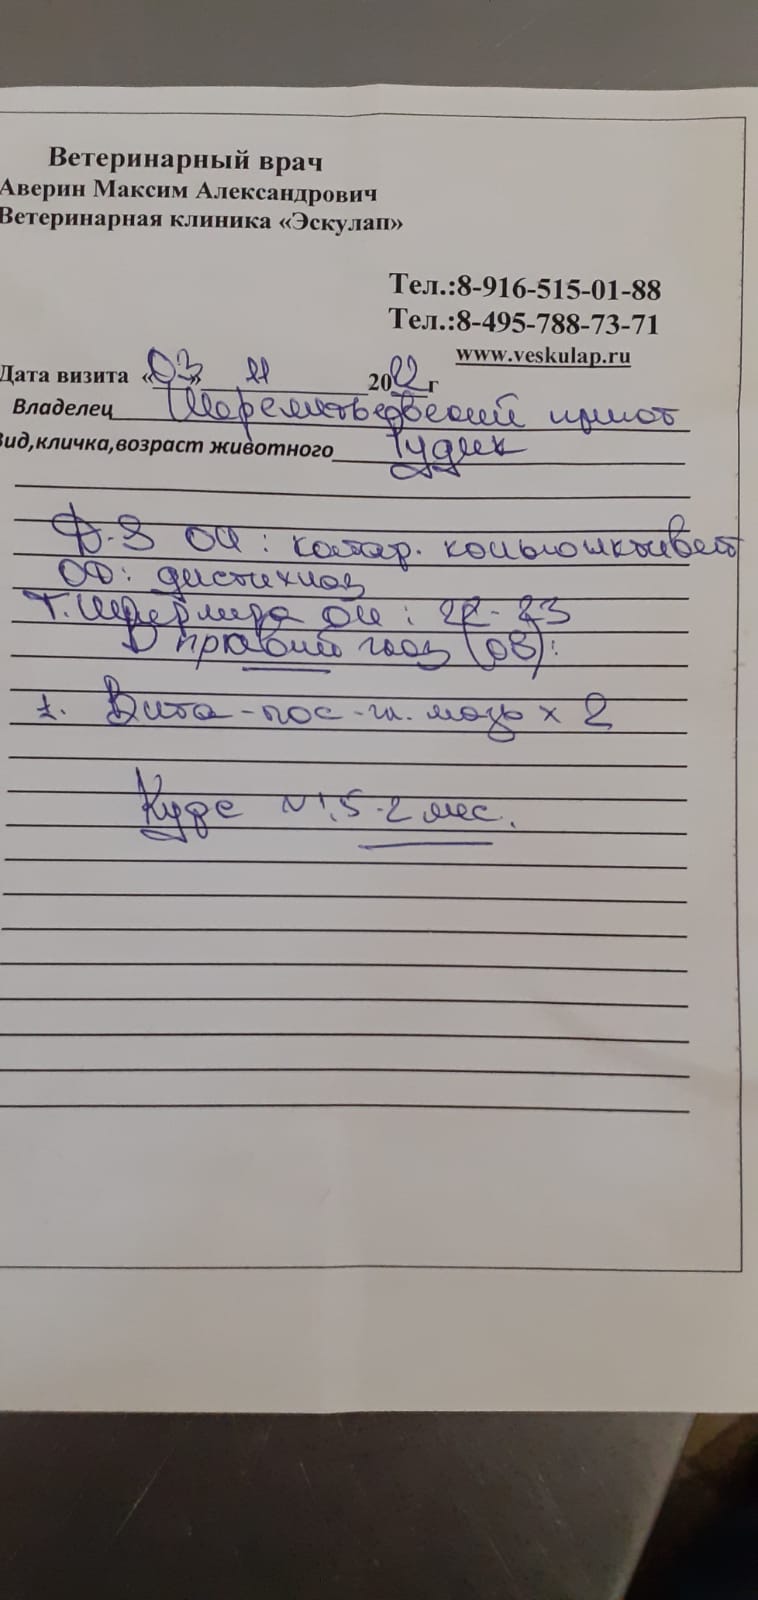 Ветеринарный врач
Аверин Максим Александрович
Ветеринарная клиника «Эскулап»
Тел.:8-916-515-01-88
Тел.:8-495-788-73-71
www.veskulap.ru
Дата визита «03» 11 2022г
Владелец Шереметьевский приют
Вид,кличка,возраст животного
Д-З ОИ: катар. коньюнктивит
ОД: дистихиаз
Т. Ширмера ОИ: 22-23
В правый глаз (OD):
1. Вита-пос-гл. мазь х 2
Курс 1,5-2 мес.